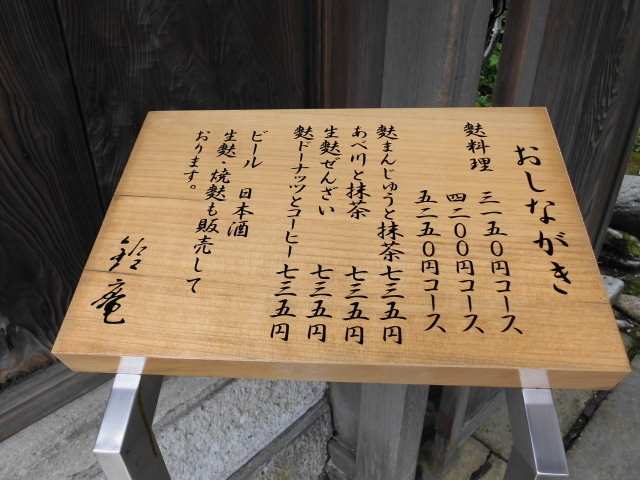 おしながき
麸料理 三一五〇円コース
四二〇〇円コース
五二五〇円コース
麸まんじゅうと抹茶 七三五円
あべ川と抹茶 七三五円
生麸ぜんざい 七三五円
麸ドーナッツとコーヒー 七三五円
ビール 日本酒
生麸・焼麸も販売して
おります。